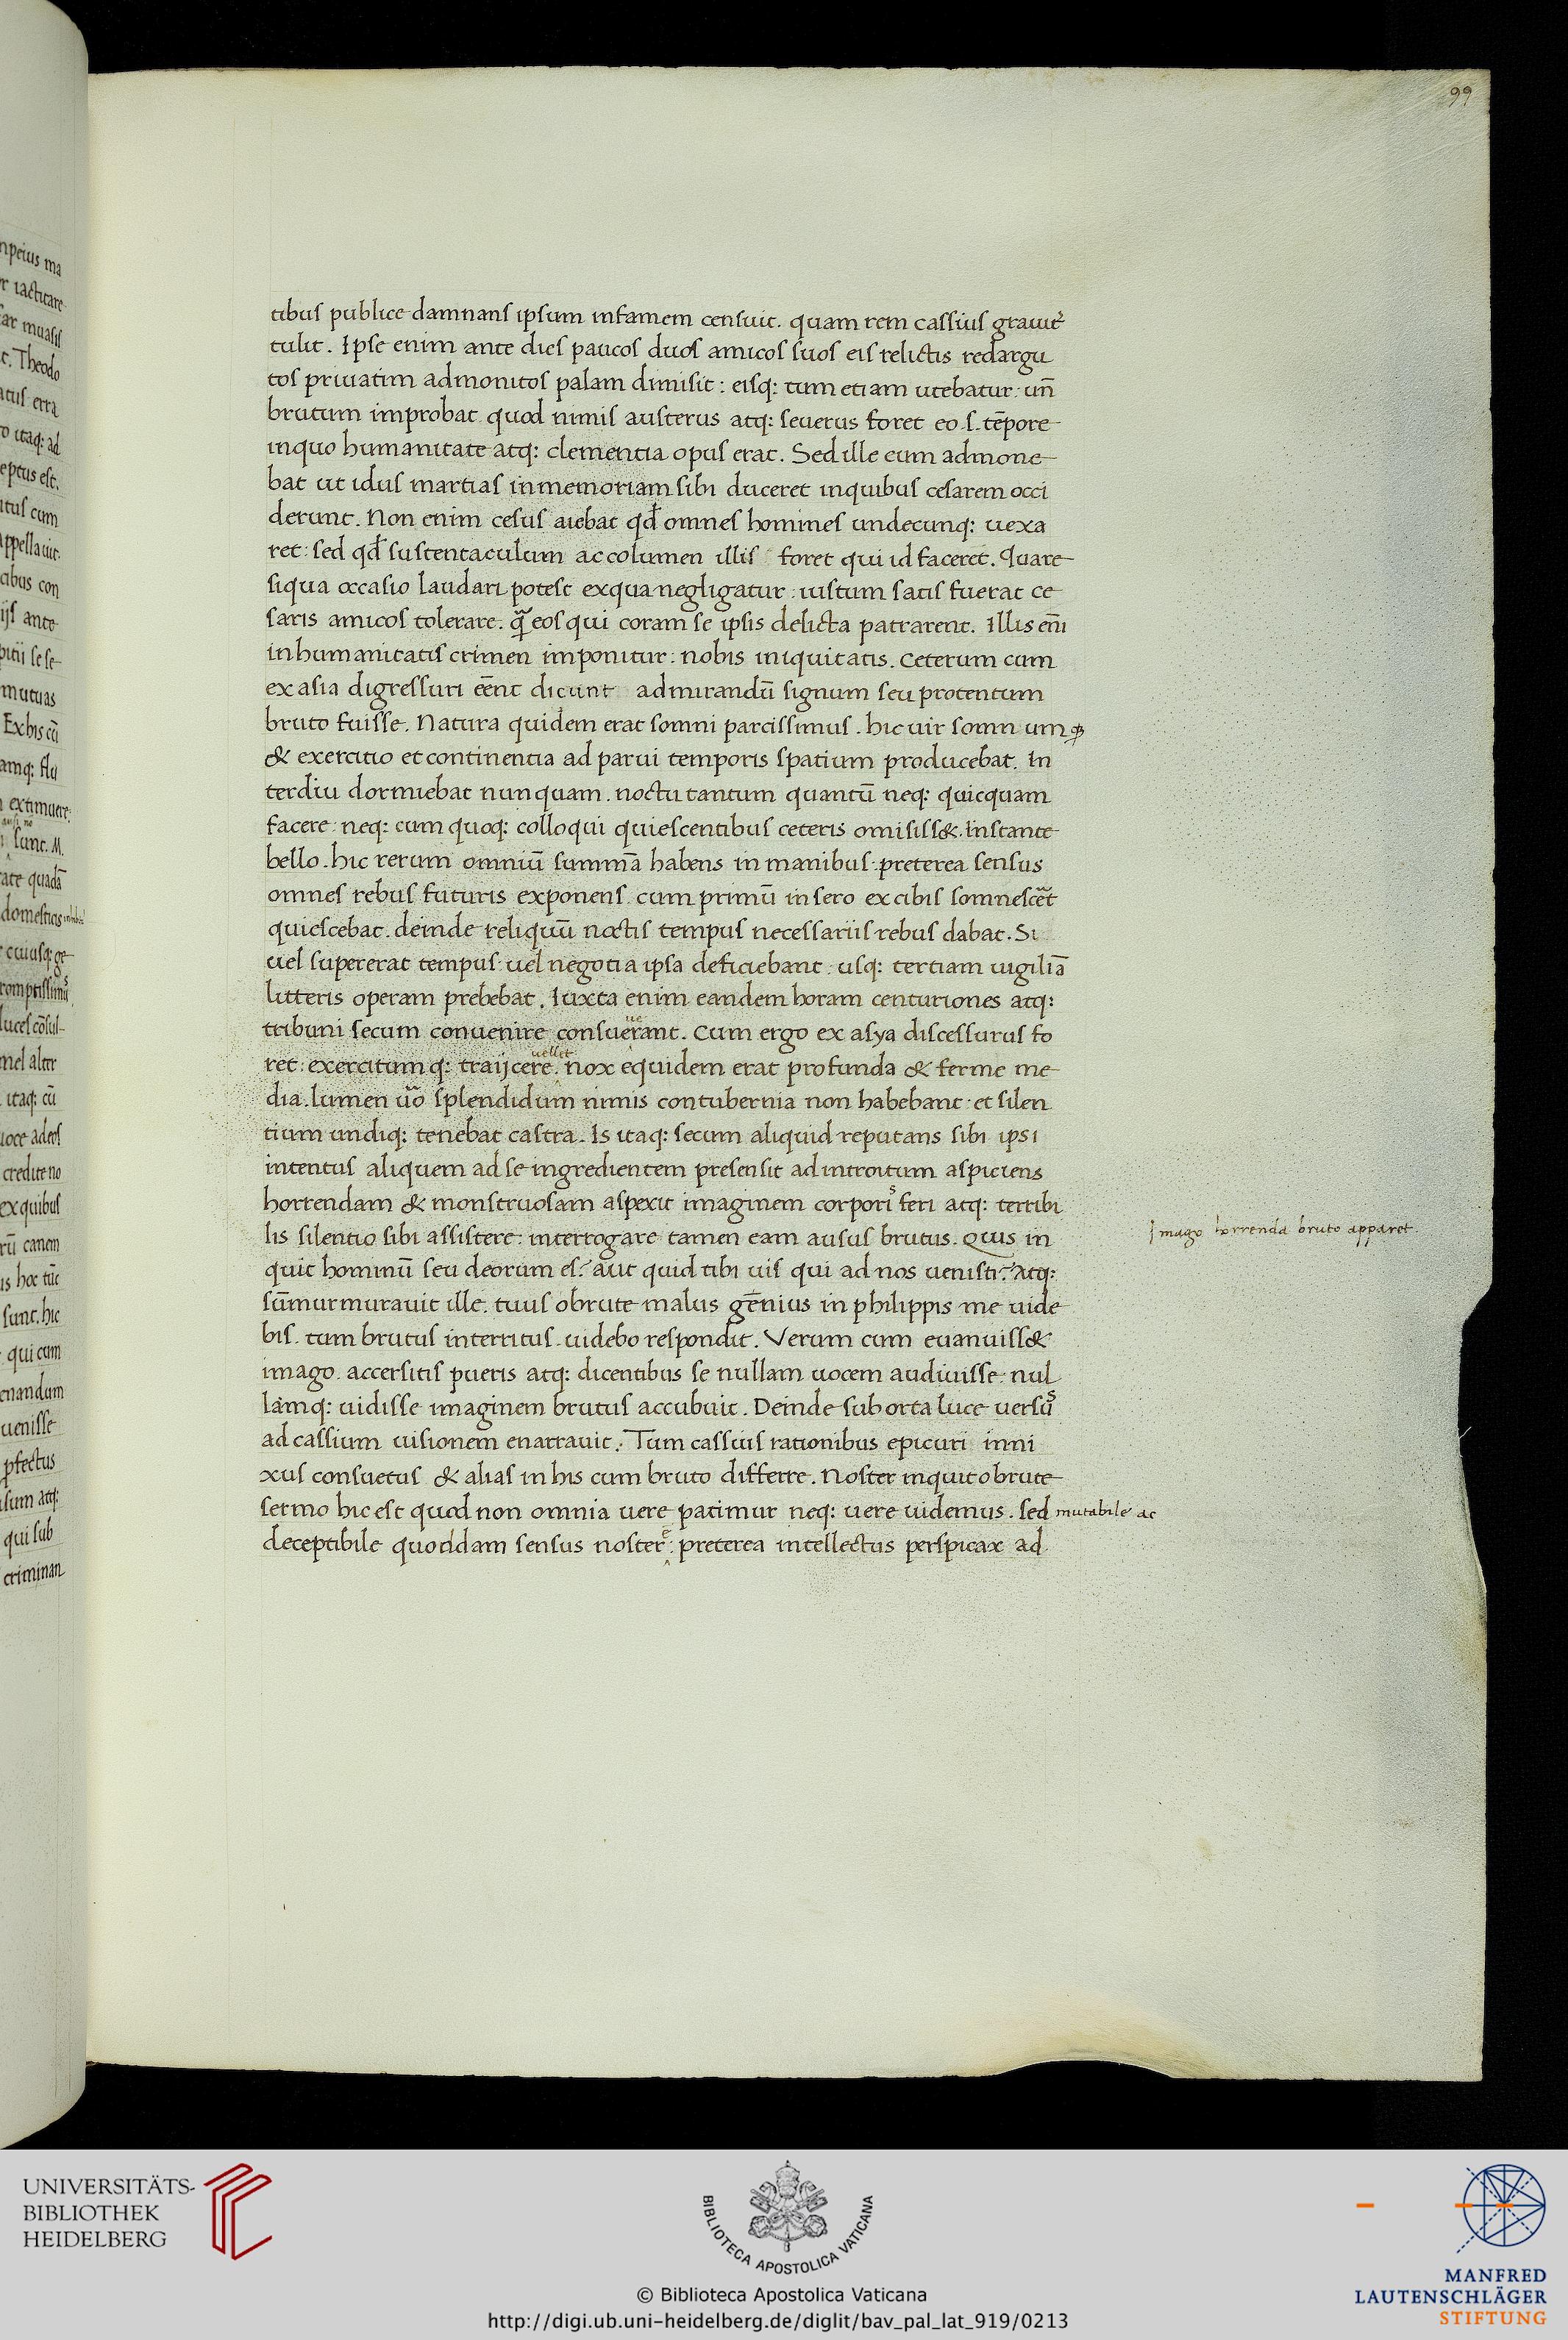 99
tibus publice damnans ipsum infamem censuit. quam rem cassius grauit̉
tulit. Ipse enim ante dies paucos duos amicos suos eis relictis redargu
tos priuatim admonitos palam dimisit: eisq: tum etiam utebatur. un̄
brutum improbat quod nimis austerus atq: seuerus foret eo .s. tēpore
inquo humanitate atq: clementia opus erat. Sed ille eum admone
bat ut idus martias in memoriam sibi duceret inquibus cesarem occi
derunt. Non enim cesus aiebat qđ omnes homines undecunq: uexa
ret: sed qđ sustentaculum ac columen illis foret qui id faceret. Quare
siqua occasio laudari potest exqua negligatur: iustum satis fuerat ce
saris amicos tolerare. q̄ eos qui coram se ipsis delicta patrarent. Illis eñi
inhumanitatis crimen imponitur: nobis iniquitatis. Ceterum cum
ex asia digressuri eēnt dicunt admirandū signum seu protentum
bruto fuisse. Natura quidem erat somni parcissimus. hic uir somn um
& exercitio et continentia ad parui temporis spatium producebat. In
terdiu dormiebat nunquam. noctu tantum quantū neq: quicquam
facere: neq: cum quoq: colloqui quiescentibus ceteris omisiss&. Instante
bello. hic rerum omniū summā habens in manibus: preterea sensus
omnes rebus futuris exponens. cum primū in sero ex cibis somnescēt
quiescebat. deinde reliquū noctis tempus necessariis rebus dabat. Si
uel supererat tempus: uel negotia ipsa deficiebant: usq: tertiam uigiliā
litteris operam prebebat. Iuxta enim eandem horam centuriones atq:
tribuni secum conuenire consuerant. Cum ergo ex asya discessurus fo
ue
ret: exercitumq: traijcere. nox equidem erat profunda & ferme me
uellet
dia. lumen ūo splendidum nimis contubernia non habebant: et silen
tium undiq: tenebat castra. Is itaq: secum aliquid reputans sibi ipsi
intentus aliquem ad se ingredientem presensit ad introitum aspiciens
horrendam & monstruosam aspexit imaginem corporis feri atq: terribi
lis silentio sibi assistere: interrogare tamen eam ausus brutus. Quis in
Imago horrenda bruto apparet.
quit hominū seu deorum es? aut quid tibi uis qui ad nos uenisti? atq:
sūmurmurauit ille. tuus o brute malus genius in philippis me uide
bis. tum brutus interritus. uidebo respondit. Verum cum euanuiss&
imago. accersitis pueris atq: dicentibus se nullam uocem audiuisse: nul
lamq: uidisse imaginem brutus accubuit. Deinde sub orta luce uersus
ad cassium uisionem enarrauit. Tum cassius rationibus epicuri inni
xus consuetus & alias in his cum bruto differre. Noster inquit o brute
sermo hic est quod non omnia uere patimur neq: uere uidemus. sed mutabile ac
deceptibile quoddam sensus noster ē: preterea intellectus perspicax ad
UNIVERSITÄTS-
BIBLIOTHEK
HEIDELBERG
BIBLIOTECA APOSTOLICA VATICANA
© Biblioteca Apostolica Vaticana
http://digi.ub.uni-heidelberg.de/diglit/bav_pal_lat_919/0213
MANFRED
LAUTENSCHLÄGER
STIFTUNG